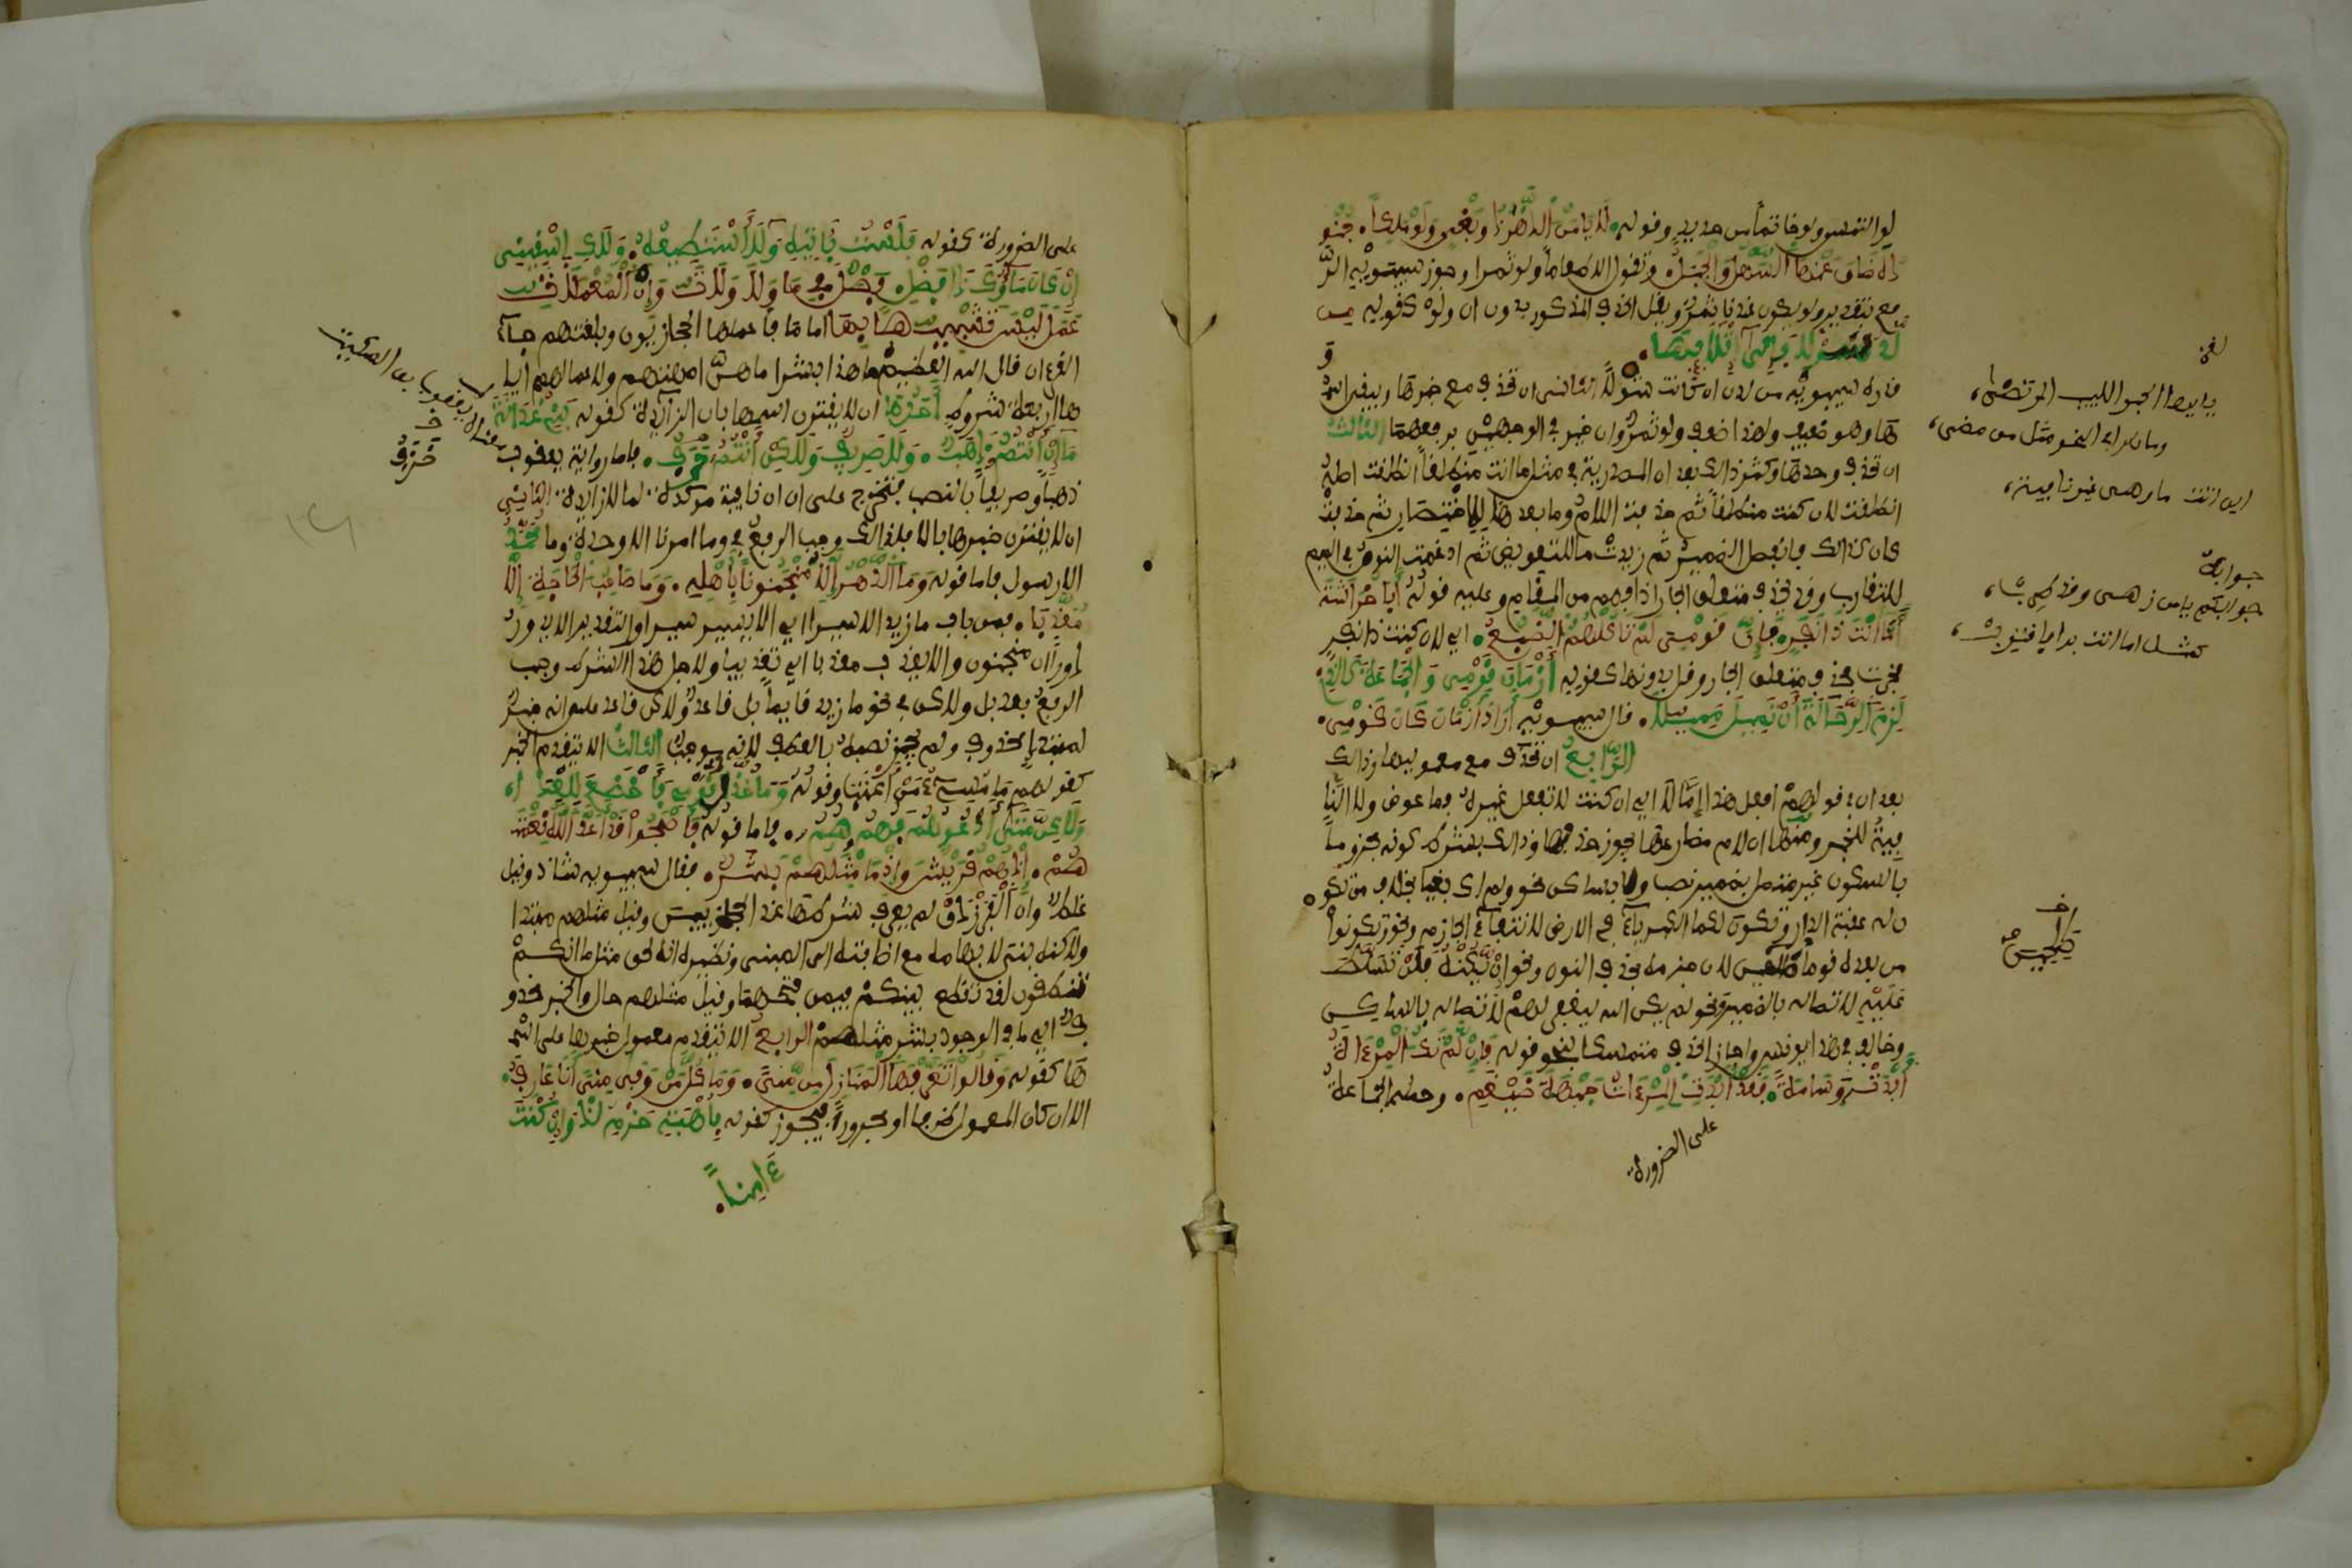 لو التمس ولو خاتما من حديد وقوله لا يامن الدهر ذو بغي ولو ملكا جنو
ده ضاق عنها السهل والجبل وتقول الا طعاما ولو تمرا وجوز سيبويه الر
فع بتقدير ولو يكون عندنا تمر ويقل الحذف المذكور بدون ان ولو كقوله من
لد شولا فإلى إتلائها و
قدره سيبويه من لدن ان كانت شولا الثاني ان تحذف مع خبرها ويبقى اسم
ها وهو ضعيف ولهذا ضعف ولو تمر وان خير في الوجهين برفعهما الثالث
ان تحذف وحدها وكثر ذالك بعد ان المصدرية في مثل اما انت منطلقا انطلقت اصله
انطلقت لان كنت منطلقا ثم حذفت اللام وما بعدها للاختصار ثم حذفت
كان لذالك فانفصل الضمير ثم زيدت ما للتعويض ثم ادغمت النون في الميم
للتقارب وقد تحذف متعلق الجار اذا فهم من المقام وعليه قوله أبا خراشة
أما أنت ذا نفر فإن قومي لم تأكلهم الضبع اي لان كنت ذا نفر
فخرت فحذف متعلق الجار وقل بدونها كقوله أزمان قومي والجماعة كالذي
لزم الرحالة أن تميل مميلا قال سيبويه أراد أزمان كان قومي
الرابع ان تحذف مع معموليها وذالك
بعد ان في قولهم افعل هذا إما لا اي ان كنت لا تفعل غيره فما عوض ولا النا
فية للخبر ومنها ان لام مضارعها يجوز حذفها وذالك بشرط كونه مجزوما
بالسكون غير متصل بضمير نصب ولا بساكن نحو ولم اك بغيا بخلاف من تكو
ن له عقبة الدار وتكون لكما الكبرياء في الارض لانتفاء الجازم ونحو وتكونوا
من بعده قوما صالحين لان جزمه بحذف النون ونحو ان يكنه فلن تسلط
عليه لاتصاله بالضمير ونحو لم يكن الله ليغفر لهم لاتصاله بالساكن
وخالف في هذا يونس واجاز الحذف متمسكا بنحو قوله فإن لم تك المرءاة
أبدت وسامة فقد أبدت المرءاة جبهة ضيغم وحمله الجماعة
على الضرورة
يا ايها الحبر اللبيب المرتضى
ايس اتت ما وهي غير نافية
جوابه
جوابكم يا من زهى
كمثل اما انت برا فاقترب
صالحين
على الضرورة كقوله فلست بآتيه ولا أستطيعه ولاك اسقني
إن كان ماؤك ذا فضل فصل في ما ولا ولات وإن المعملات
عمل ليس تشبيها بها اما ما فأعملها الحجازيون وبلغتهم جآء
القرءان قال الله العظيم ما هذا بشرا ما هن امهاتهم ولاعمالهم ايا
ها اربعة شروط أحدها ان لا يقترن اسمها بان الزائدة كقوله بني غدانة
ما إن أنتم ذهب ولا صريف ولكن أنتم خزف فاما رواية يعقوب
ذهبا وصريفا بالنصب فتخرج على ان ان نافية موكدة لما لا زائدة الثاني
ان لا يقترن خبرها بالا فلذالك وجب الرفع في وما امرنا الا وحدة وما محمد
الا رسول فاما قوله وما الدهر إلا منجنونا بأهله وما صاحب الحاجات إلا
معذبا فمن باب ما زيد الا سيرا اي الا يسير سيرا والتقدير الا يدور
دوران منجنون والا يعذب معذبا اي تعذيبا ولاجل هذا الشرط وجب
الرفع بعد بل ولاكن في نحو ما زيد قايما بل قاعد ولاكن قاعد على انه خبر
لمبتدإ محذوف ولم يجز نصبه بالعطف لانه موجب الثالث الا يتقدم الخبر
كقولهم ما مسيء من أعتب وقوله وما خذل قومي فأخضع للعدا
ولاكن إذا أدعوهم فهم هم فاما قوله فأصبحوا قد أعاد الله نعمت
هم إذ هم قريش وإذ ما مثلهم بشر فقال سيبويه شاذ وقيل
غلط وان الفرزدق لم يعرف شرطها عند الحجازيين وقيل مثلهم مبتدا
ولاكنه بني لابهامه مع اضافته الى المبني ونظيره انه لحق مثل ما انكم
تنطقون لقد تقطع بينكم فيمن فتحهما وقيل مثلهم حال والخبر محذو
ف اي ما في الوجود بشر مثلهم الرابع الا يتقدم معمول خبرها على اسم
ها كقوله وقالوا تعرفها المنازل من منى وما كل من وافى منى أنا عارف
الا ان كان المعمول ظرفا او مجرورا فيجوز كقوله بأهبة حزم لذ وإن كنت
ءامنا
خزف